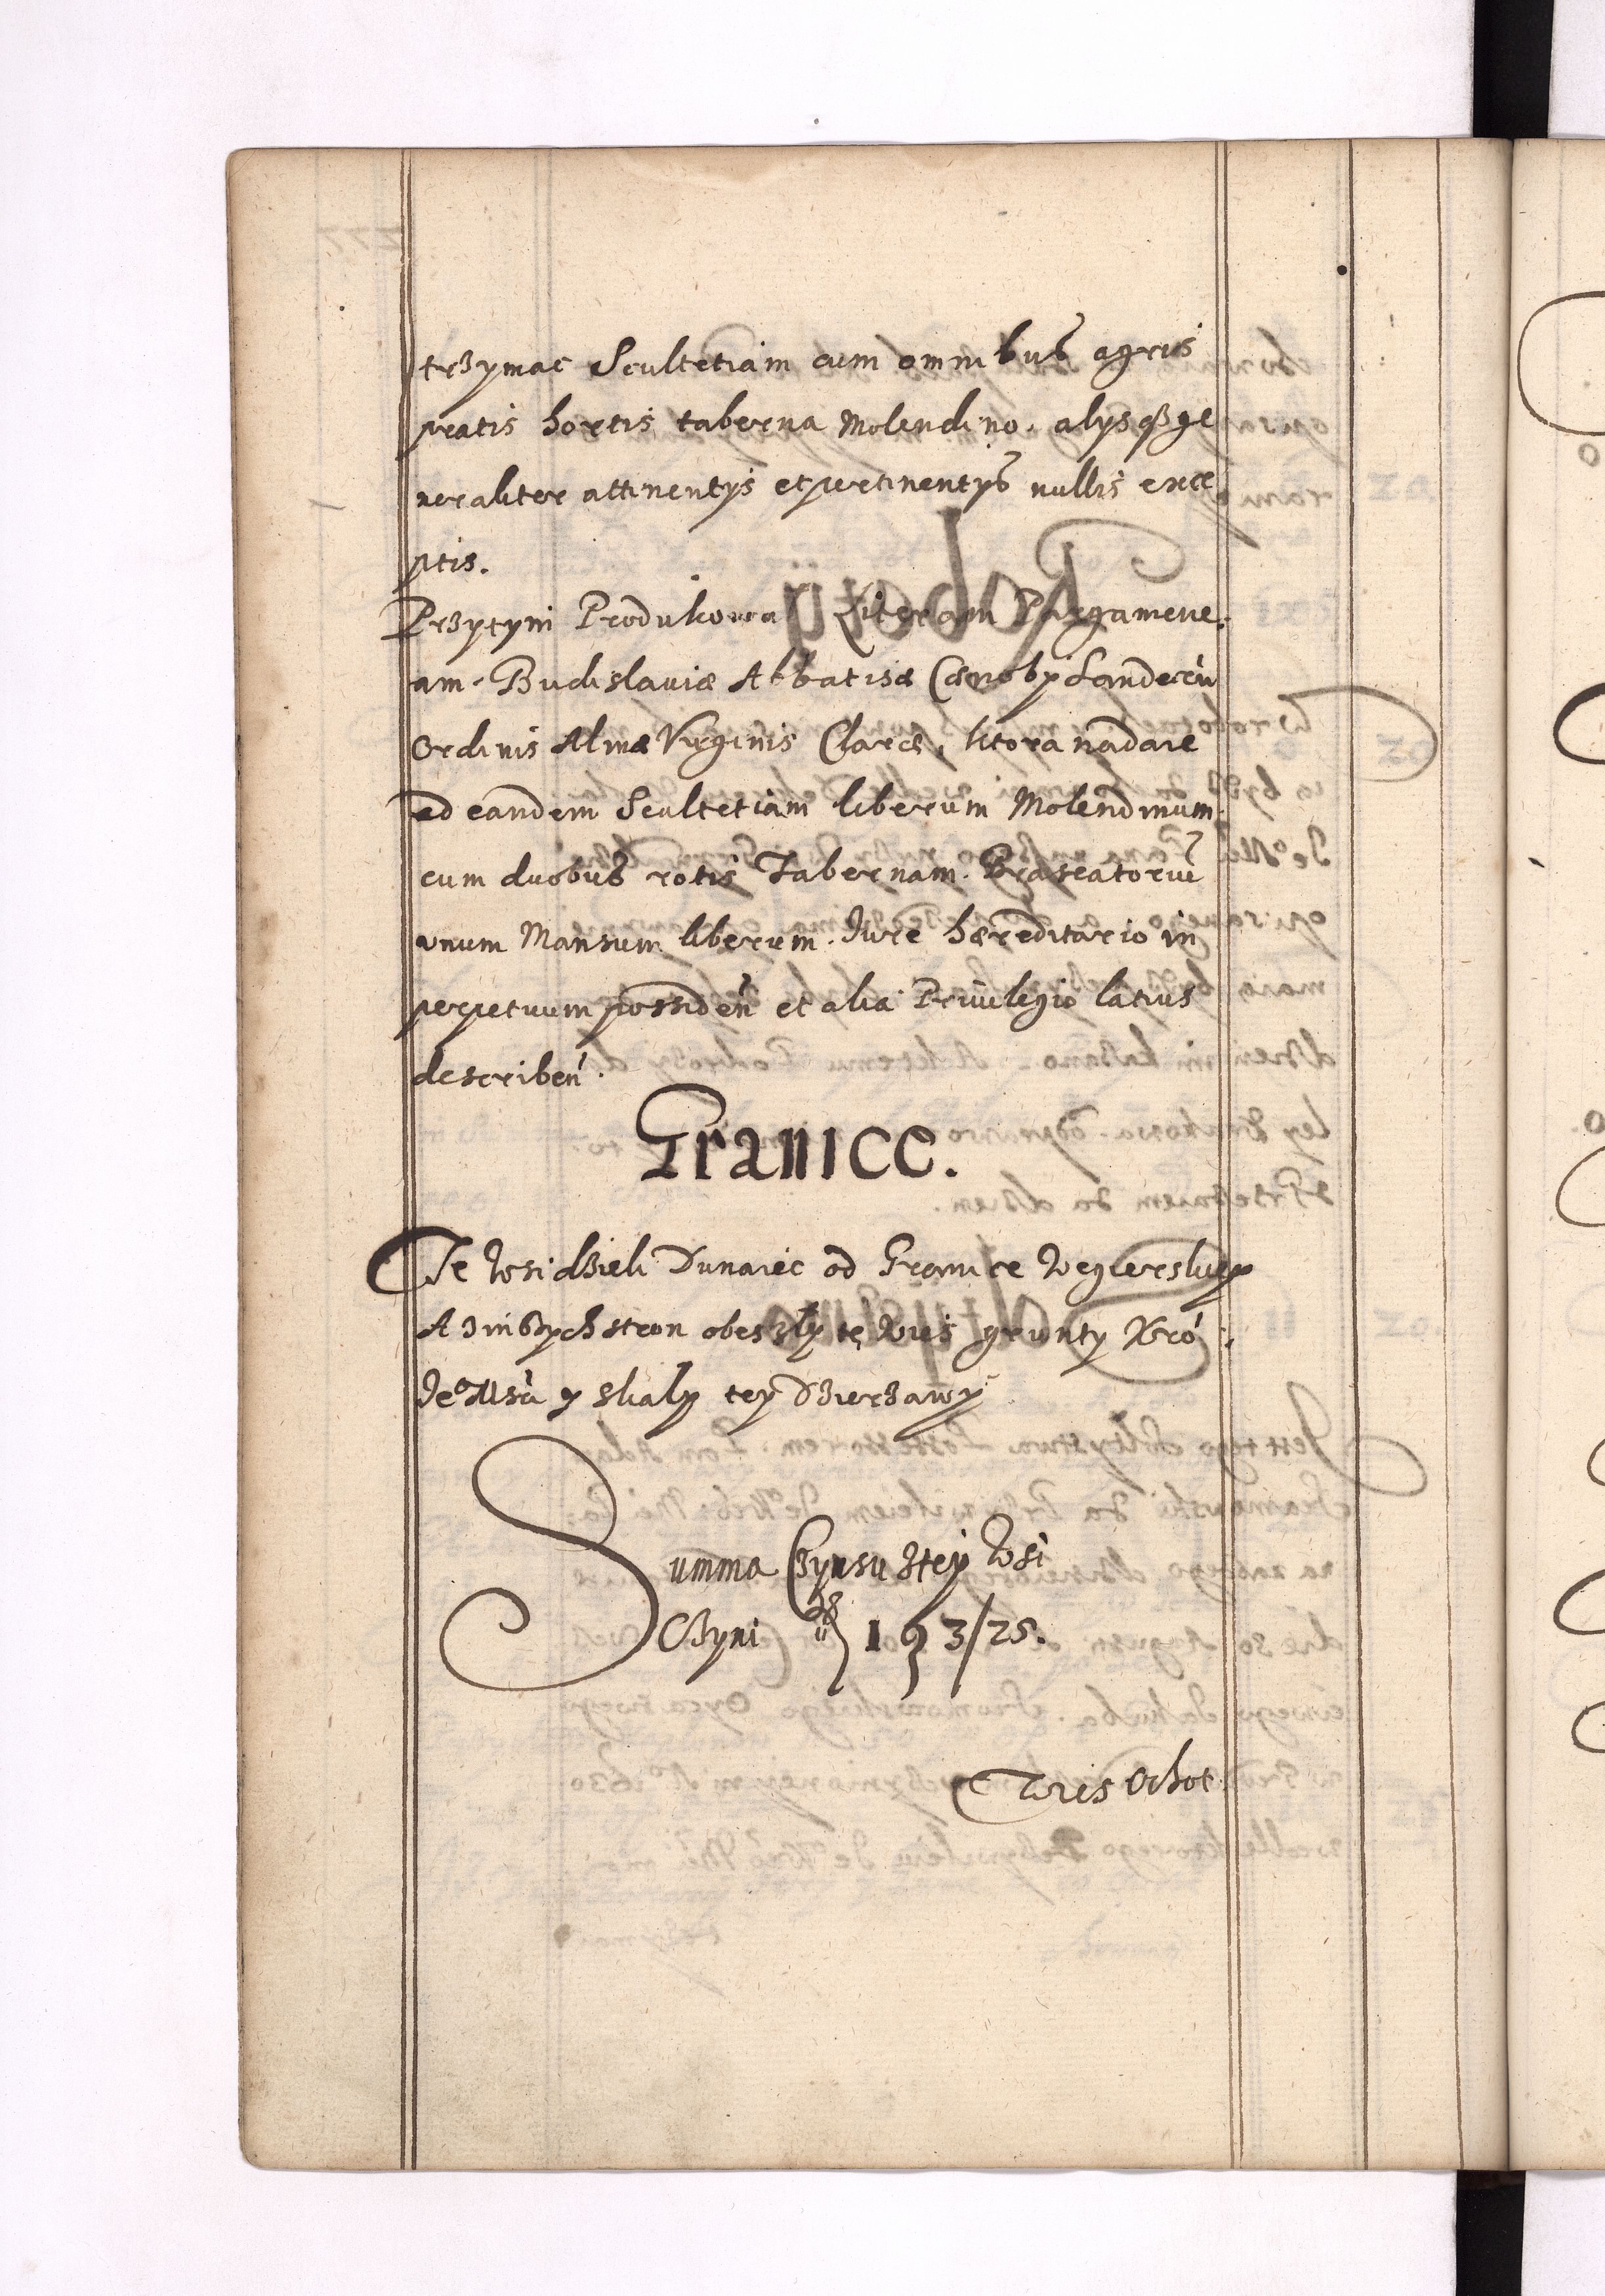 trzymac Scultetiam cum omnibus agris
pratis hortis taberna Molendino. alysqз ge
neraliter attinentys et pertinentys nullis exce
ptis.
Przytym Produkowal Literam Pargamene.
am. Budislaviæ Abbatisæ Cænoby Sandecū
Ordinis Almæ Virginis Claræ, ktora nadaie
ad eandem Scultetiam liberum Molendinum
cum duobus rotis Tabernam. Braseatoriū
unum Mansum liberum. Jure hæreditario in
perpetuum possiden̄ et alia Privilegio latius
describen̄.
Granice.
Te Wsi dzieli Dunaiec od Granice Węgierskiey
A z inszych stron obeszly tę Wieś grunty Kró:
Je⁰ Mści y skaly tey Dzierzawy
Summa Czynszu ztey Wsi
Czyni 193/25.
Wies Ochot